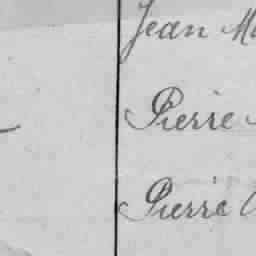 Jean
Pierre
Pierre